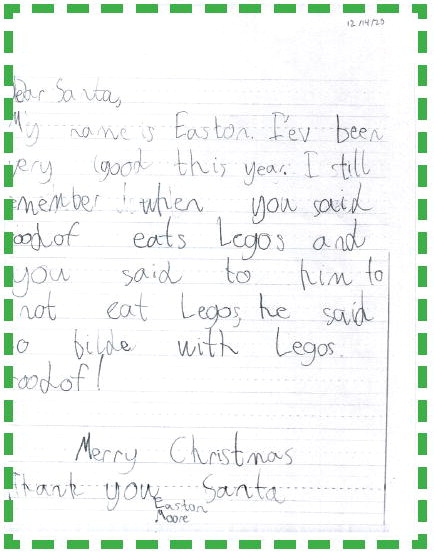 12/14/23
ear Santa,
My name is Easton. I'ev been
ery good this year. I still
member when you said
oodof eats Legos and
you said to him to
not eat Legos, he said
o bilde with Legos.
oodof!
Merry Christmas
Thank you Santa
Easton
Moore